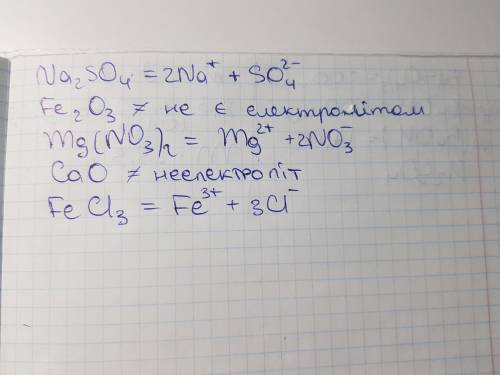 Na₂SO₄ = 2Na⁺ + SO₄²⁻
Fe₂O₃ ≠ не є електролітом
Mg(NO₃)₂ = Mg²⁺ + 2NO₃⁻
CaO ≠ неелектроліт
FeCl₃ = Fe³⁺ + 3Cl⁻